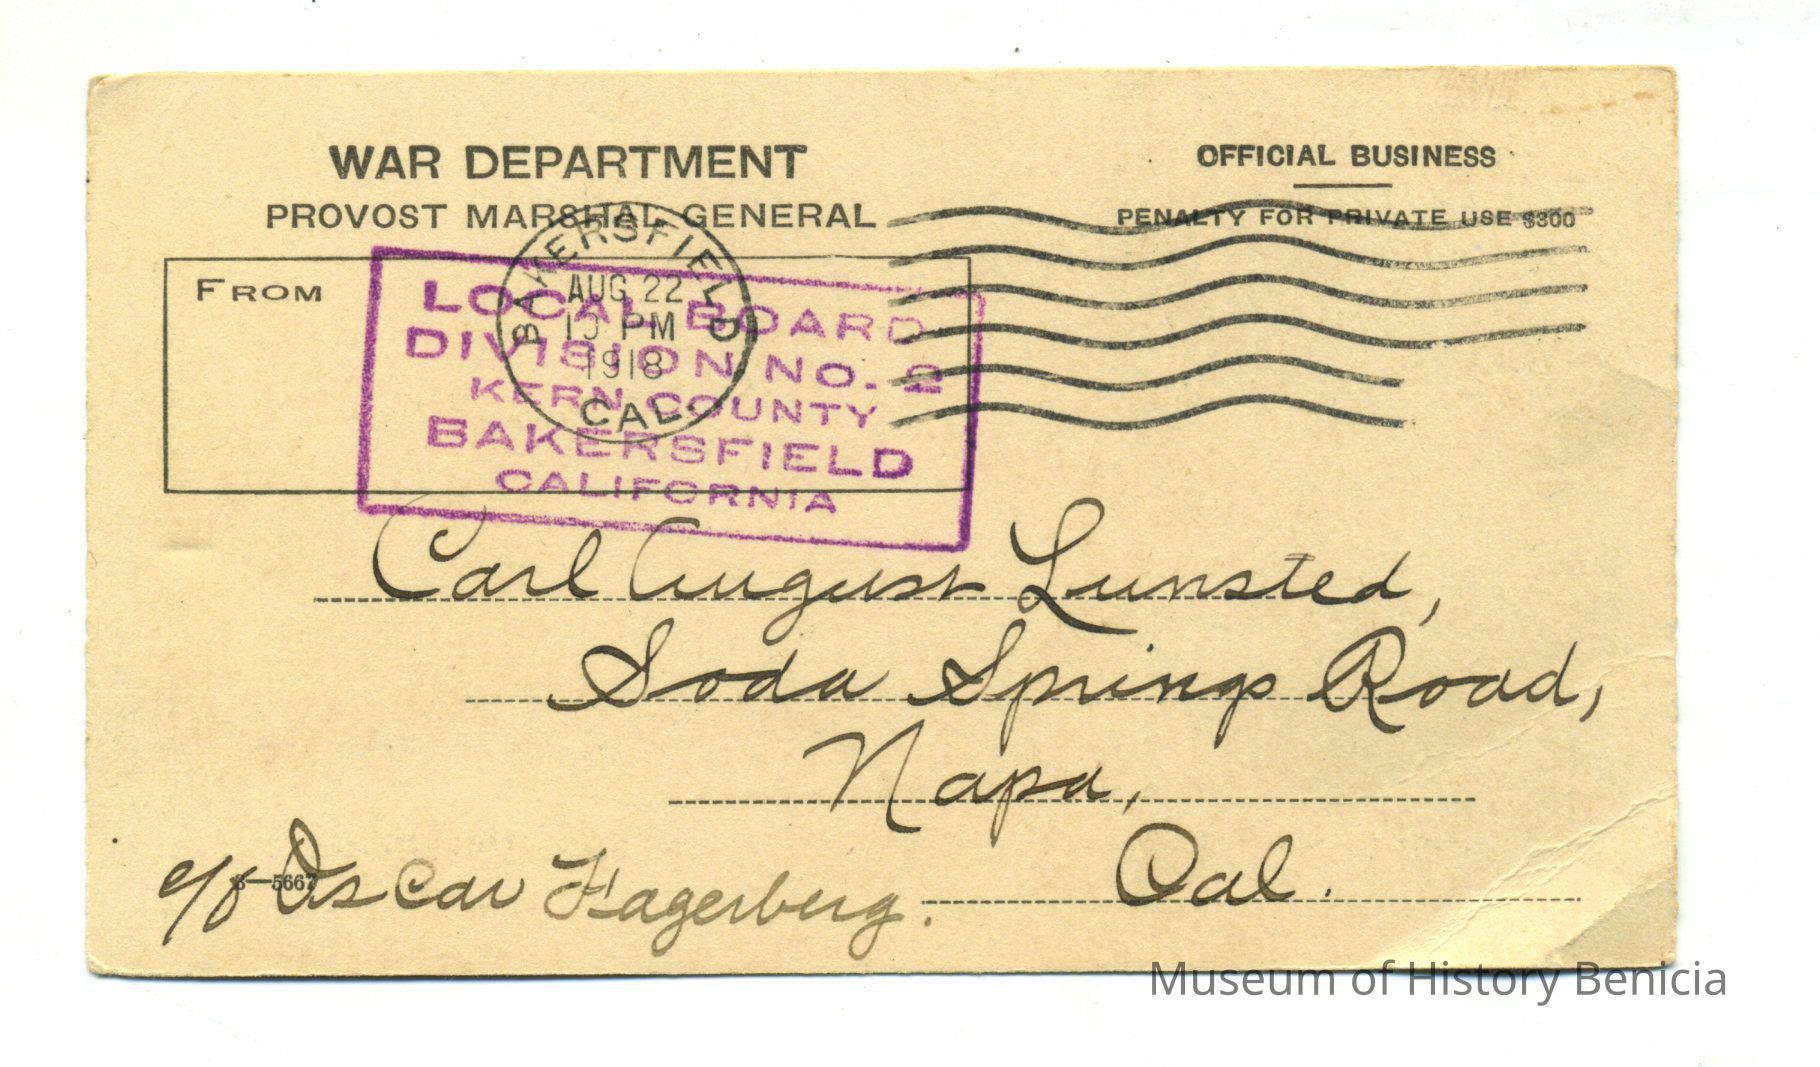 WAR DEPARTMENT
PROVOST MARSHAL GENERAL
OFFICIAL BUSINESS
PENALTY FOR PRIVATE USE $300
FROM
BAKERSFIELD
AUG 22
PM
1918
CAL.
LOCAL BOARD
DIVISION NO. 2
KERN COUNTY
BAKERSFIELD
CALIFORNIA
Carl August Lunsted,
Soda Springs Road,
Napa,
Cal.
c/o Oscar Hagerberg.
3—5667
Museum of History Benicia